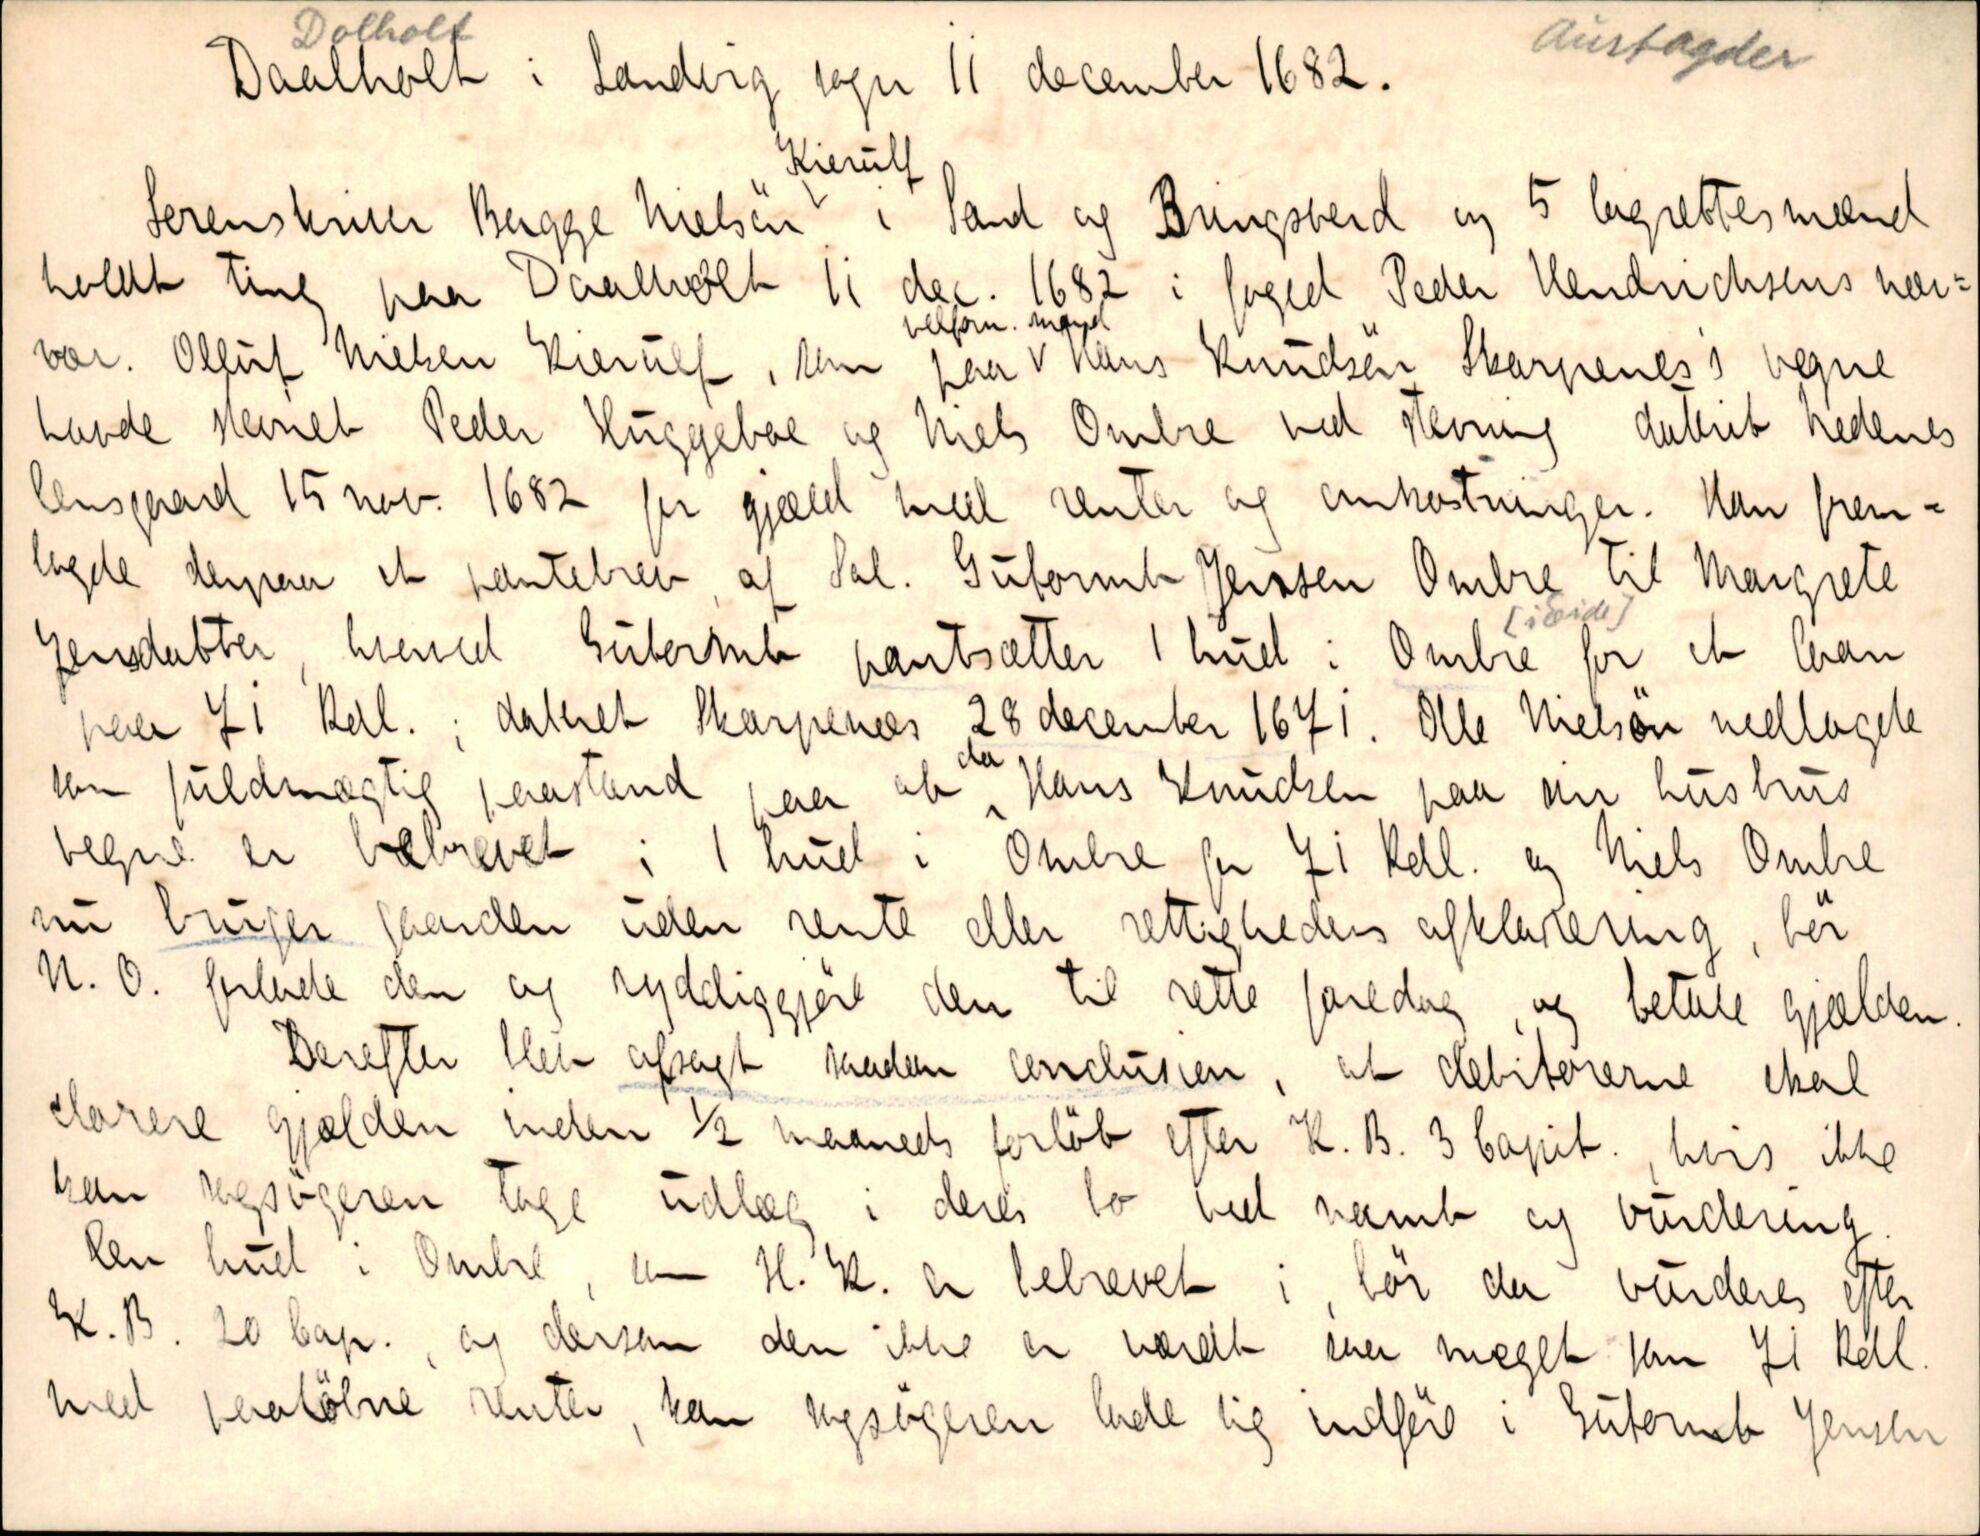 Dolholt
Austagder
Daalholt i Landvig sogn 11 december 1682.
Kierulf
Sorenskriver Bugge Nielsön i Sand og Bringsverd og 5 lagrettesmænd
holdt ting paa Daalholt 11 dec. 1682 i foged Peder Hendrichsens nær=
velforn. mand
vær. Olluf Nielsen Kierulf, som paa Hans Knudsön Skarpenes's vegne
havde stevnet Peder Huggeboe og Niels Ombre ved stevning datérit Nedenes
lensgaard 15 nov. 1682 for gjæld med renter og omkostninger. Han frem=
lagde derpaa et pantebrev af Sal. Gutormb Jenssen Ombre til Margrete
[i Eide]
Jensdatter, hvorved Gutormb pantsætter 1 hud i Ombre for et laan
paa 71 Rdl.; dateret Skarpenæs 28 december 1671. Olle Nielsön nedlagde
da
som fuldmægtig paastand paa at Hans Knudsen paa sin hustrus
vegne er bebrevet i 1 hud i Ombre for 71 Rdl. og Niels Ombre
nu bruger gaarden uden rente eller rettigheders afklarering, bör
N. O. forlade den og ryddiggjöre den til rette faredag, og betale gjælden.
Derefter blev afsagt saadan conclusion, at debitorerne skal
clarere gjælden inden 1/2 maaneds forlöb efter K. B. 3 Capit., hvis ikke
kan sagsögeren tage udlæg i deres bo ved namb og vurdering.
Den hud i Ombre, som H. K. er bebrevet i, bör da vurderes efter
K. B. 20 Cap., og dersom den ikke er værdt saa meget som 71 Rdl.
med paalöbne renter, kan sagsögeren lade sig indföre i Gutormb Jensen